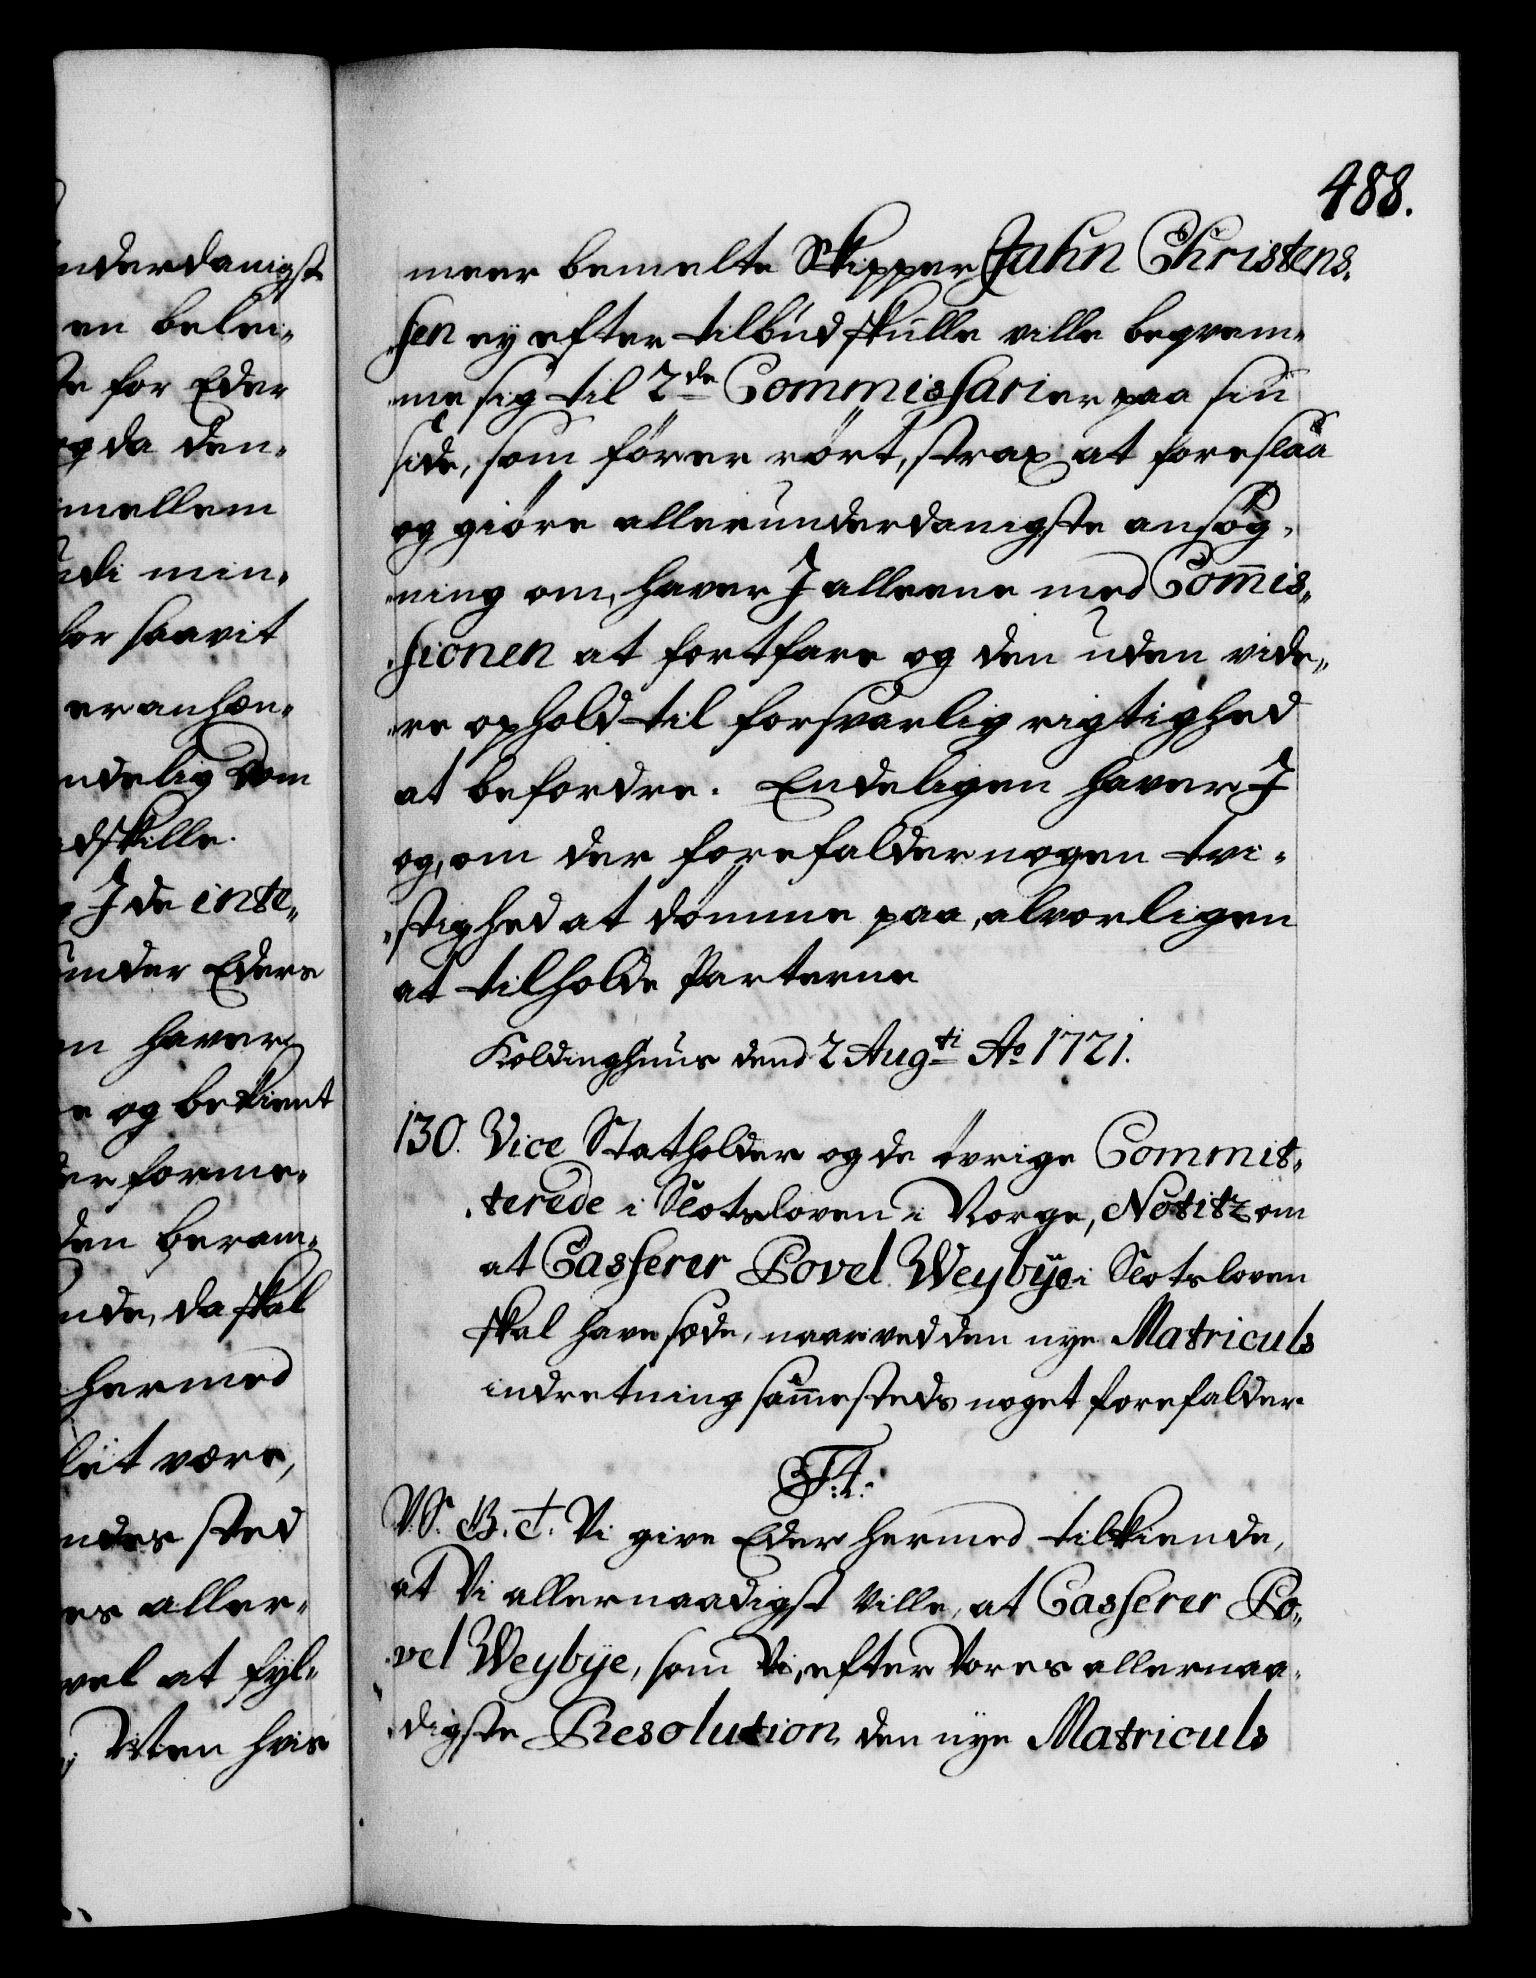 488.
meer bemelte Skipper Jahn Christens,
sen ey efter tilbud skulle ville beqvem,
me sig til 2de Commissarier paa sin
side, som förer rört, strax at foreslaa
og giöre allerunderdanigste ansög,
ning om, haver I alleene med Com̄is,
sionen at fortfare og den uden vide,
re ophold til forsvarlig rigtighed
at befordre. Endeligen haver I
og, om der forefalder nogen tvi,
stighed at dömme paa, alvorligen
at tilholde Parterne
Koldinghuus dend 2 Augti Ao 1721.
130. Vice Statholder og de övrige Commit,
terede i Slotsloven i Norge, Notitz om
at Casserer Povel Weybÿe i Slotsloven
skal have sæde, naar ved den nye Matriculs
indretning sam̄esteds noget forefalder.
F. 4.
V. S. B. T. Vi give Eder hermed tilkiende,
at Vi allernaadigst ville, at Casserer Po,
vel Weybÿe, som Vi, efter Vores allernaa,
digste Resolution den nye Matriculs
nderdanigst
en belei,
te for Eder
og da den,
imellem
udi min,
for saavit
er anhæn,
ndelig dom
adskille.
I de inte,
under Eders
en haver
e og bekient
der forme,
den beram,
nde, da skal
hermed
leit være,
ndes sted
es aller,
vel at fÿl,
Men hvis